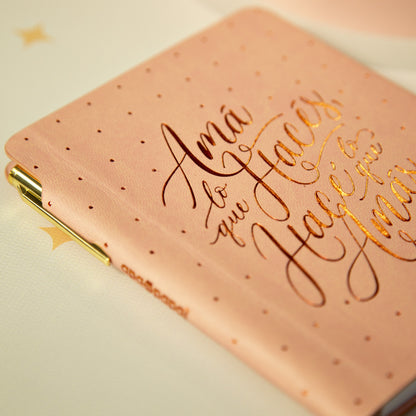 Amá
lo que Hacés,
Hacé lo que
Amás